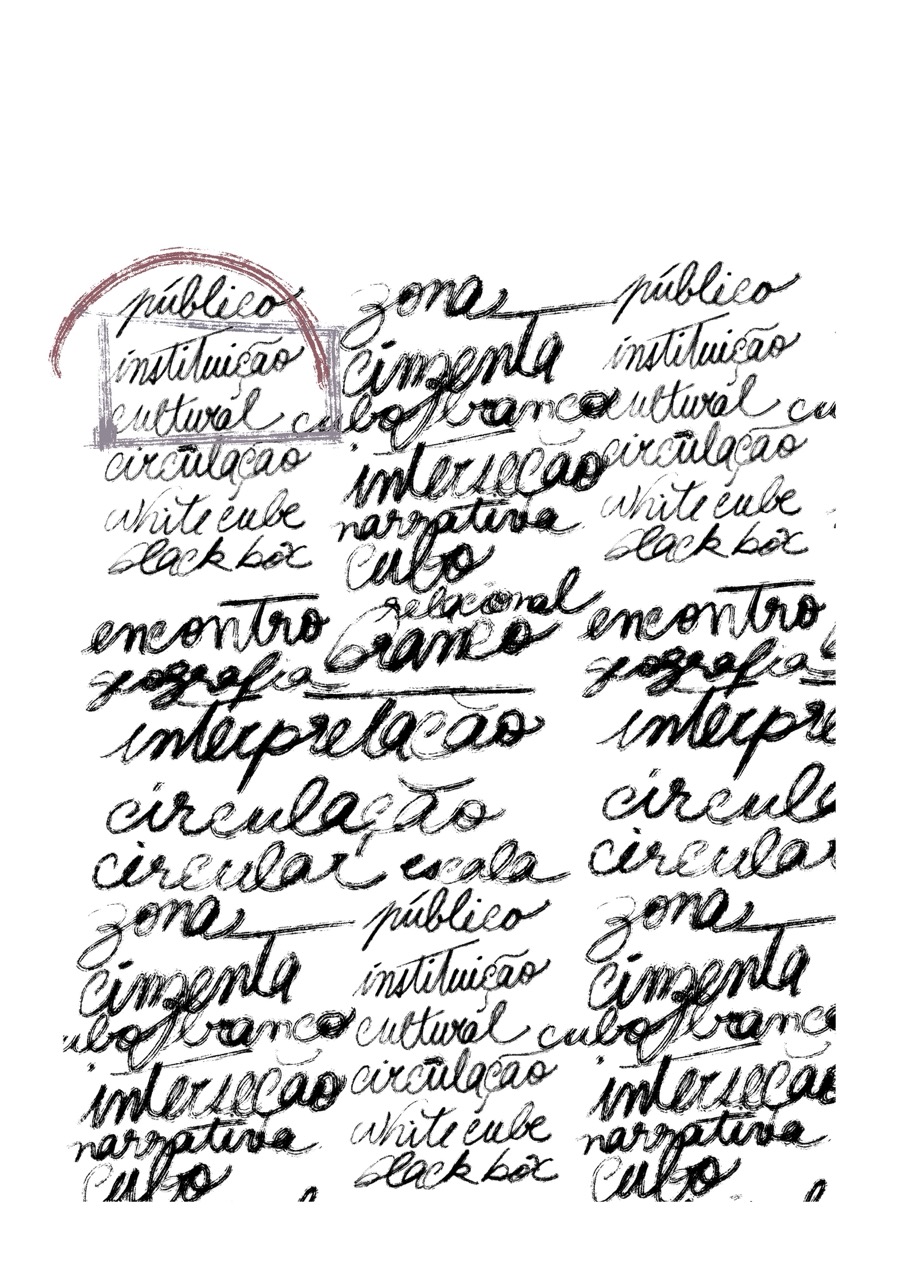 público zona público
instituição cinzenta instituição
cultural cubo branco cultural cu
circulação interseção circulação
white cube narrativa white cube
black box cubo black box
relacional
encontro branco encontro
geografia geografia
interpretação interpre
circulação circula
circular escala circular
zona público zona
cinzenta instituição cinzenta
ubo branco cultural cubo branco
interseção circulação interseção
narrativa white cube narrativa
cubo black box cubo